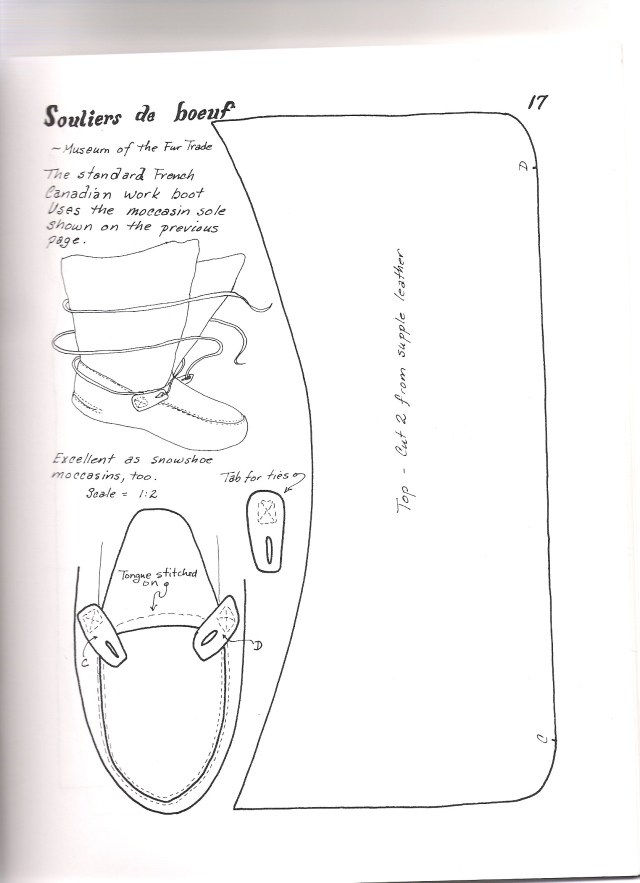 Souliers de boeuf
17
~ Museum of the Fur Trade
The standard French
Canadian work boot
Uses the moccasin sole
shown on the previous
page.
Excellent as snowshoe
moccasins, too.
Scale = 1:2
Tab for ties
Tongue stitched
on
C
D
Top - Cut 2 from supple leather
D
C